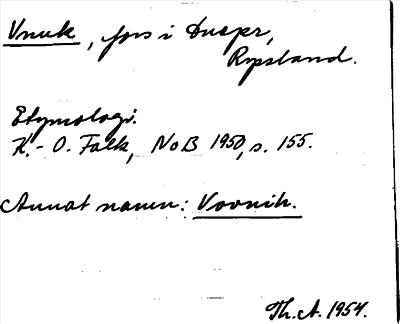 Vnuk, fors i Dnepr,
Ryssland.
Etymologi.
K.-O. Falk, NoB 1950, s. 155.
Annat namn: Vovnih.
Th. A. 1954.